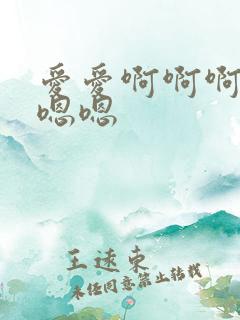 爱爱啊啊啊
嗯嗯
王逨东
未经同意禁止转载